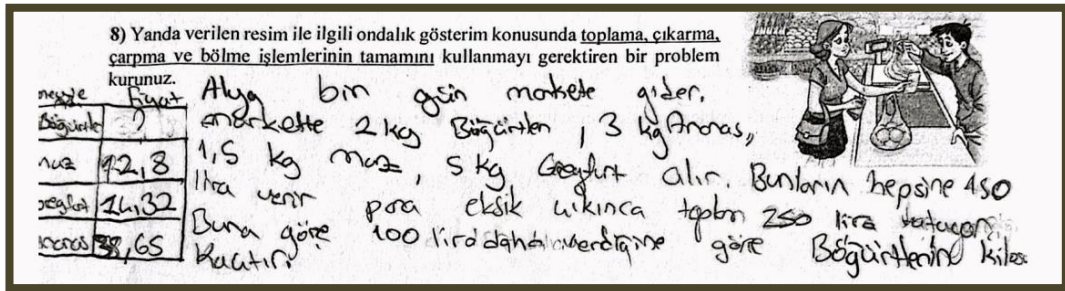 8) Yanda verilen resim ile ilgili ondalık gösterim konusunda toplama, çıkarma,
çarpma ve bölme işlemlerinin tamamını kullanmayı gerektiren bir problem
kurunuz.
Fiyat
Böğürtle ?
muz 12,8
14,32
ananas 38,65
Alya bin gün markete gider.
markette 2 kg Böğürtlen, 3 kg Ananas,
1,5 kg muz, 5 kg Greyfurt alır. Bunların hepsine 150
lira verir para eksik çıkınca toplam 250 lira
Buna göre 100 lira daha verdiğine göre Böğürtlenin kilosu
Kaçtır?